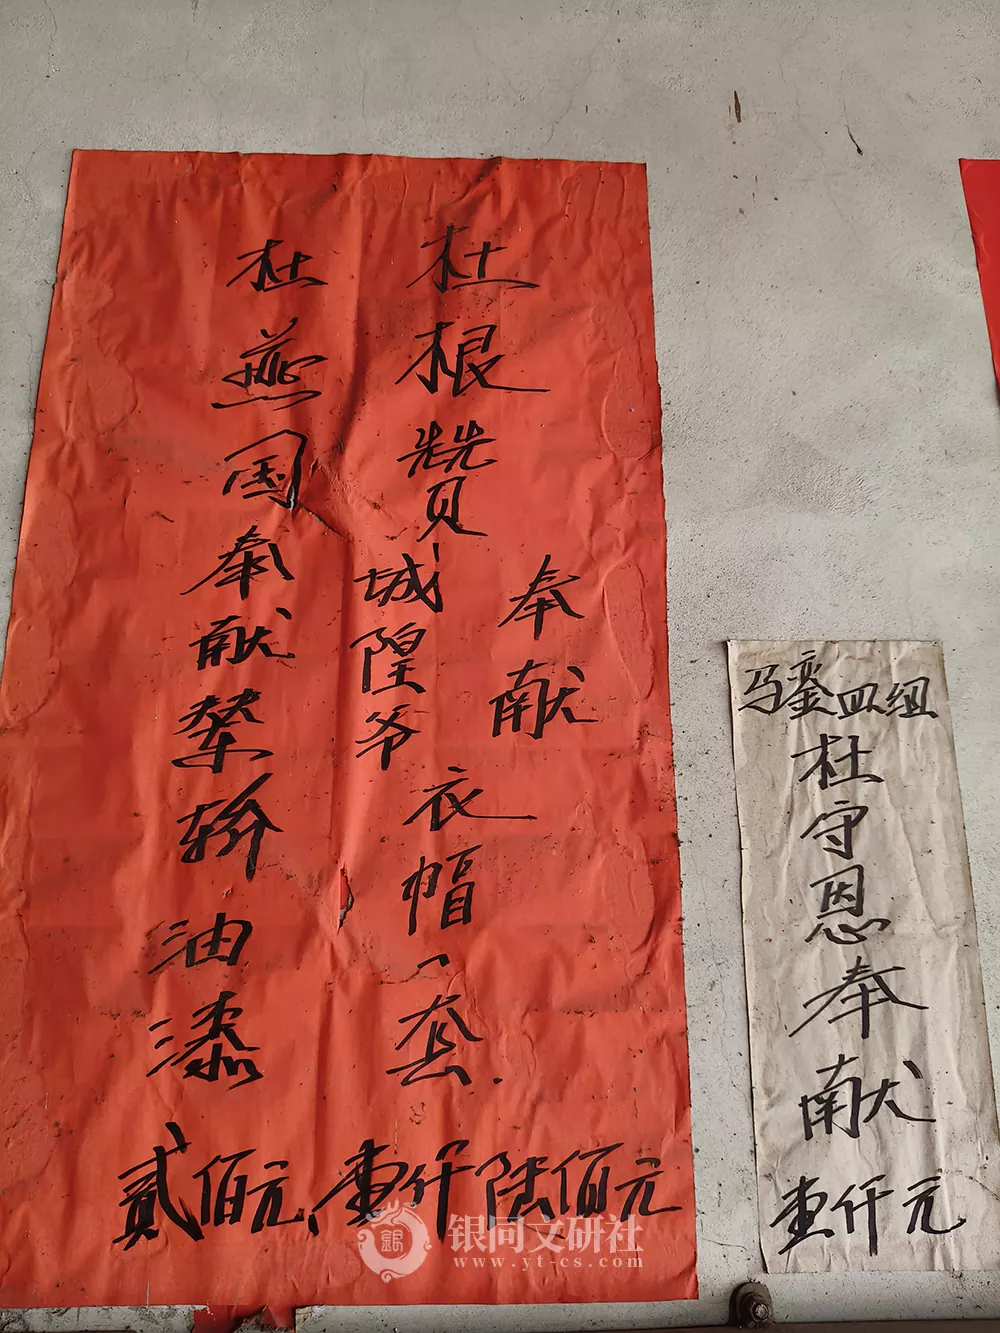 杜根赞
奉献
城隍爷
衣帽一套.
壹仟陆佰元
杜燕国奉献辇轿油漆
贰佰元、
马銮四组
杜守恩奉献
壹仟元
银同文研社
www.yt-cs.com